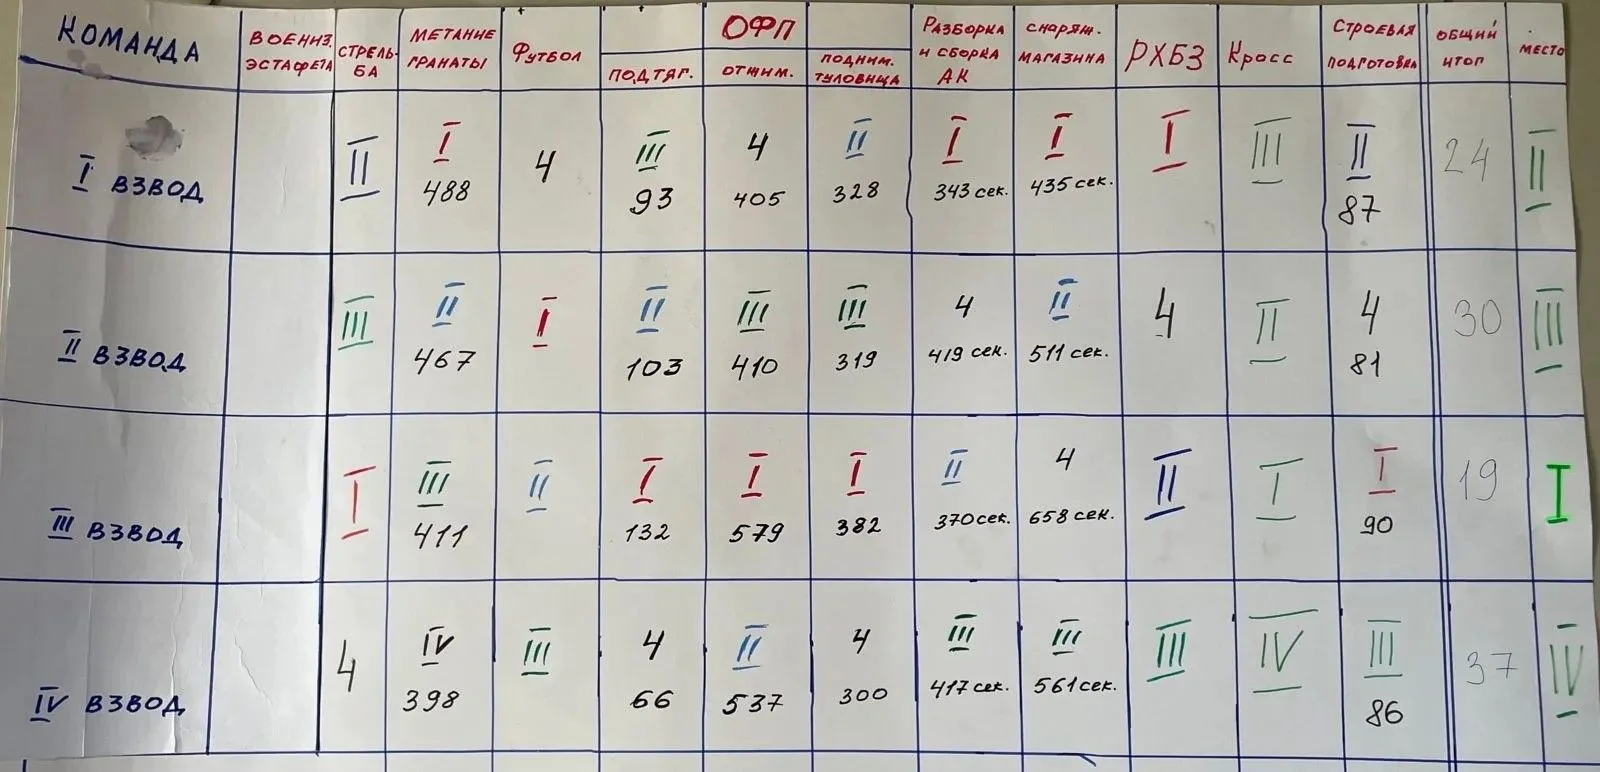 КОМАНДА
ВОЕНИЗ. ЭСТАФЕТА
СТРЕЛЬ-
БА
МЕТАНИЕ
ГРАНАТЫ
ФУТБОЛ
ОФП
ПОДТЯГ.
ОТЖИМ.
ПОДНИМ.
ТУЛОВИЩА
РАЗБОРКА
И СБОРКА
АК
СНАРЯЖ.
МАГАЗИНА
РХБЗ
Кросс
СТРОЕВАЯ
ПОДГОТОВКА
ОБЩИЙ
ИТОГ
МЕСТО
I ВЗВОД
II
I
488
4
III
93
4
405
II
328
I
343 сек.
I
435 сек.
I
III
II
87
24
II
II ВЗВОД
III
II
467
I
II
103
III
410
III
319
4
419 сек.
II
511 сек.
4
II
4
81
30
III
III ВЗВОД
I
III
411
II
I
132
I
579
I
382
II
370 сек.
4
658 сек.
II
I
I
90
19
I
IV ВЗВОД
4
IV
398
III
4
66
II
537
4
300
III
417 сек.
III
561 сек.
III
IV
III
86
37
IV